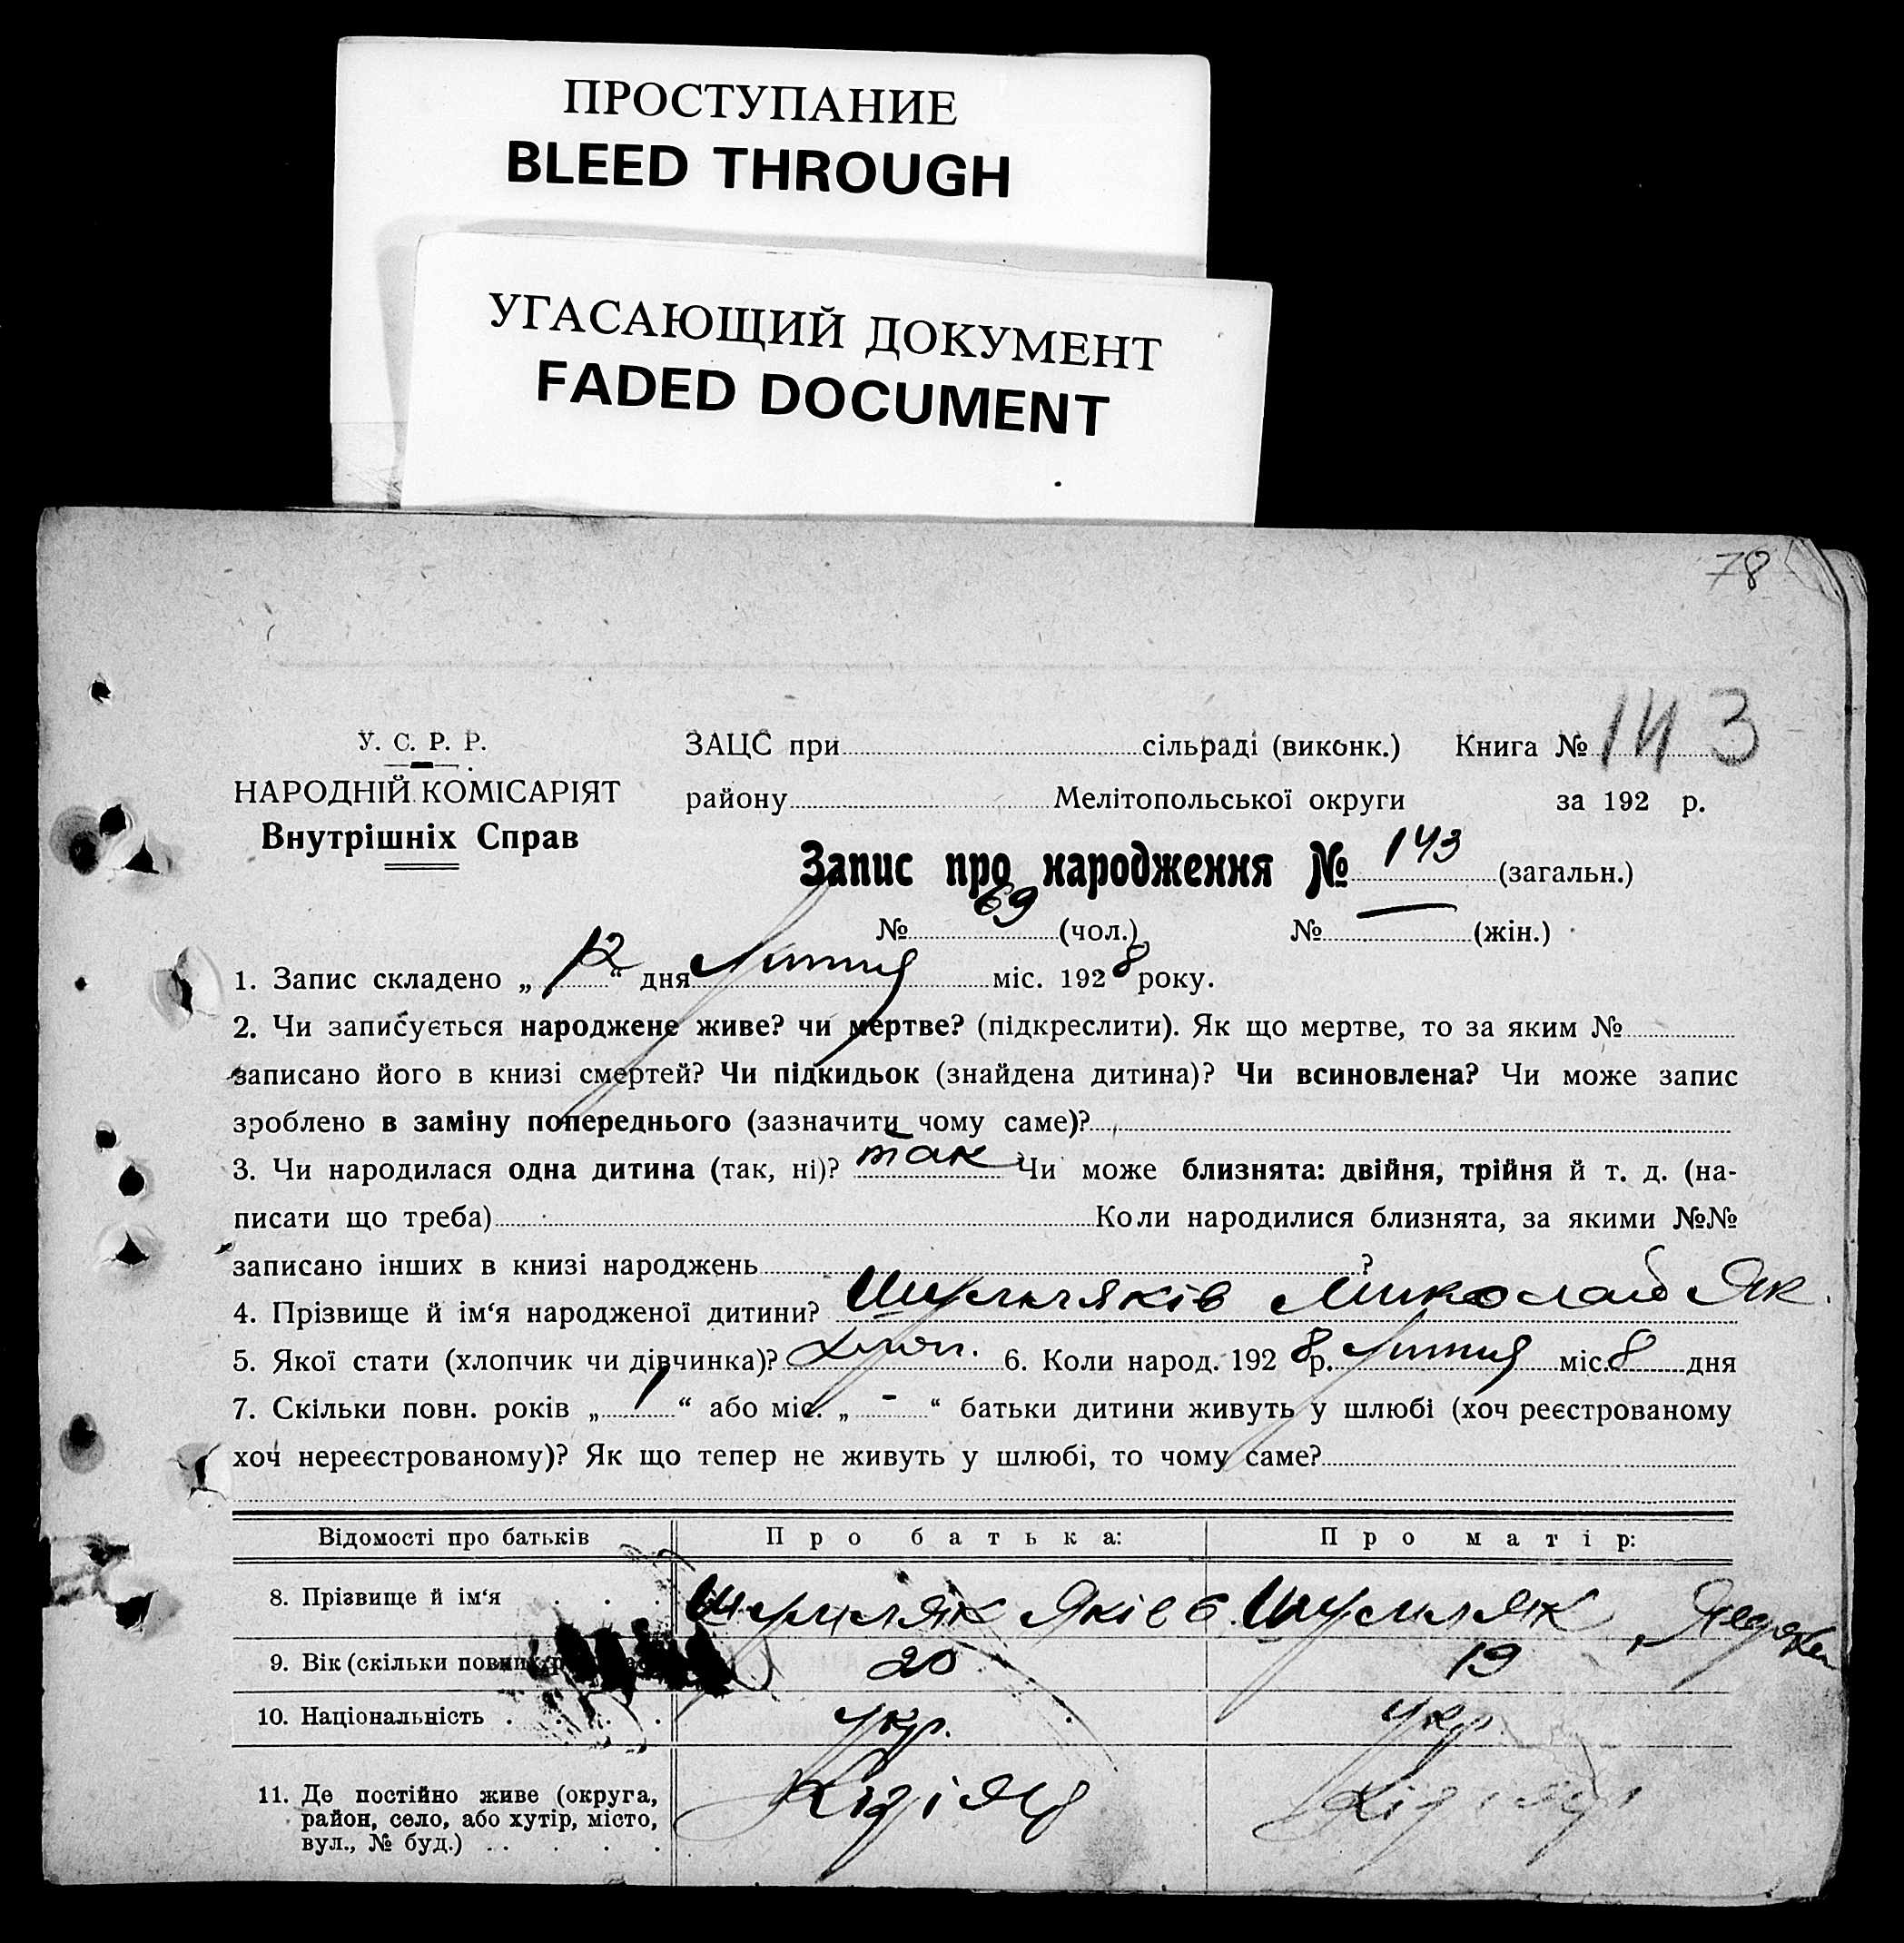 ПРОСТУПАНИЕ
BLEED THROUGH
УГАСАЮЩИЙ ДОКУМЕНТ
FADED DOCUMENT
78
У. С. Р. Р.
НАРОДНІЙ КОМІСАРІЯТ
Внутрішніх Справ
ЗАЦС при сільраді (виконк.) Книга № 143
району Мелітопольської округи за 192 р.
Запис про народження № 143 (загальн.)
№ 69 (чол.) № — (жін.)
1. Запис складено „ 12 “ дня Липня міс. 1928 року.
2. Чи записується народжене живе? чи мертве? (підкреслити). Як що мертве, то за яким №
записано його в книзі смертей? Чи підкидьок (знайдена дитина)? Чи всиновлена? Чи може запис
зроблено в заміну попереднього (зазначити чому саме)?
3. Чи народилася одна дитина (так, ні)? так Чи може близнята: двійня, трійня й т. д. (на-
писати що треба) Коли народилися близнята, за якими №№
записано інших в книзі народжень ?
4. Прізвище й ім‘я народженої дитини? Миколай Як.
5. Якої стати (хлопчик чи дівчинка)? хлоп. 6. Коли народ. 1928 р. Липня міс. 8 дня
7. Скільки повн. років „ 1 “ або міс. „ - “ батьки дитини живуть у шлюбі (хоч реєстрованому
хоч нереєстрованому)? Як що тепер не живуть у шлюбі, то чому саме?
Відомості про батьків Про батька: Про матір:
8. Прізвище й ім‘я . . . Шумляк Яків Шумляк
9. Вік (скільки повних 20 19
10. Національність . . . . укр. укр.
11. Де постійно живе (округа,
район, село, або хутір, місто,
вул., № буд.) . . . . .